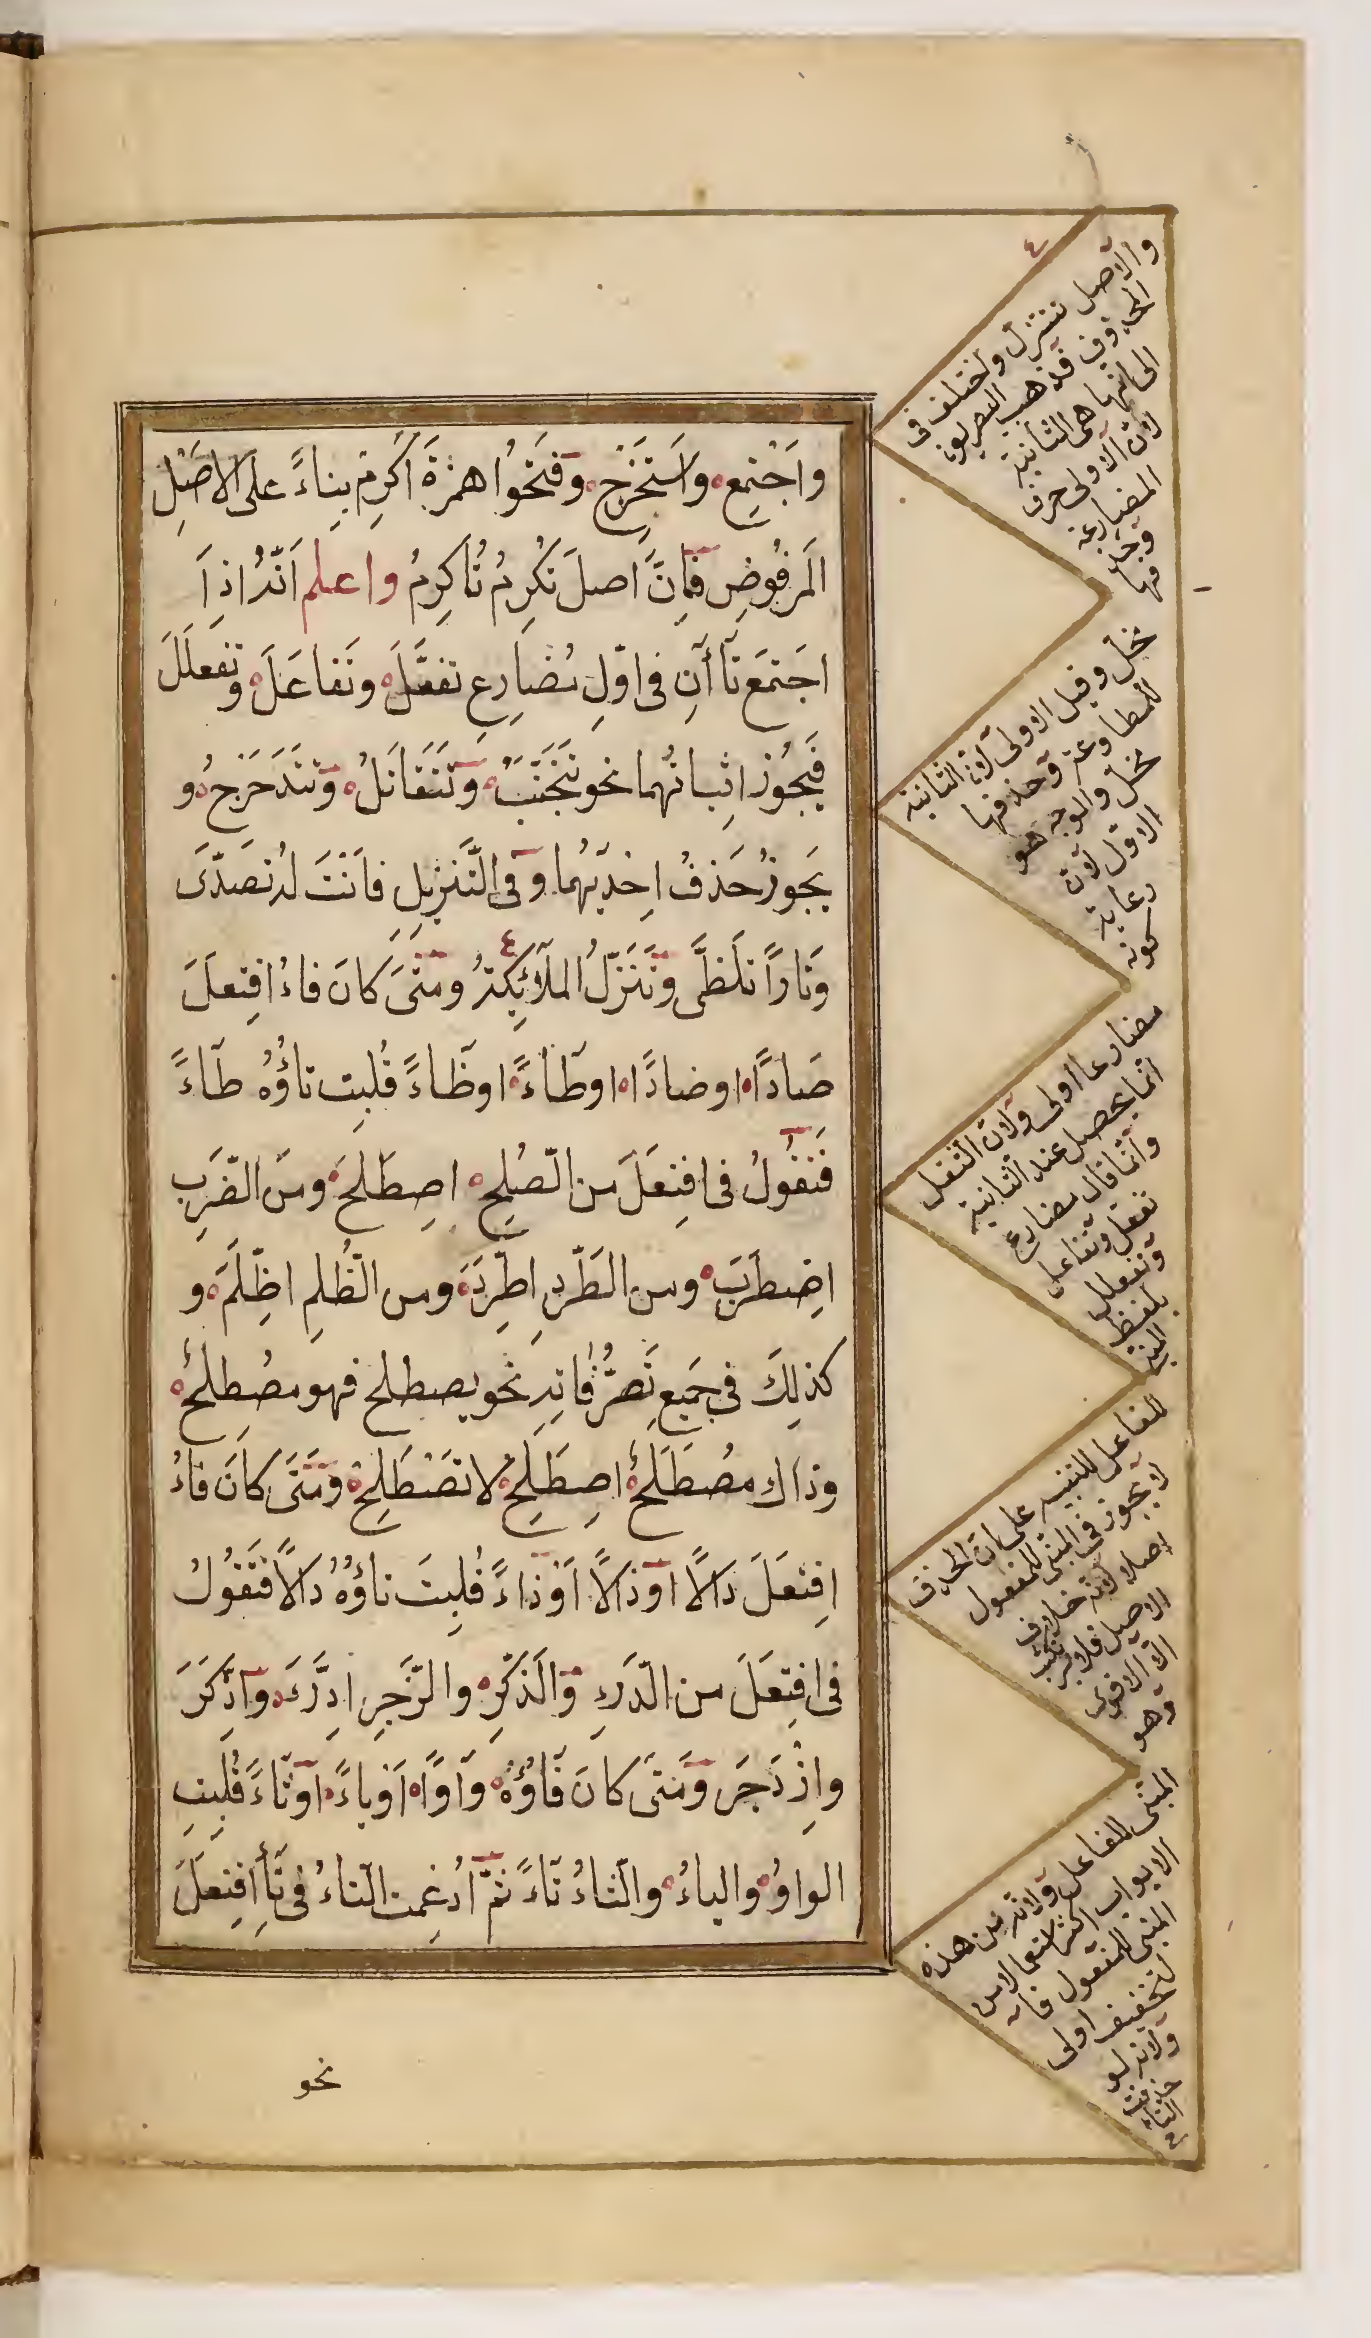 وَاجْتَمِعْ وَاسْتَخْرِجْ وَفَتَحُوا هَمْزَةَ أَكْرِمْ بِنَاءً عَلَى الاَصْلِ
الْمَرْفُوضِ فَاِنَّ اصلَ تُكْرِمُ تُاَكْرِمُ واعلم اَنَّهُ اِذَا
اجتَمَعَ تَاآنِ فى اوّلِ مُضَارِعِ تفَعَّلَ وتَفاعَلَ وتفَعلَلَ
فَيَجُوز اثباتُهما نحو تَتَجَنَّبُ وَتَتَقَاتَلُ وَتَتَدَحْرَجُ و
يَجوزُ حَذفُ اِحْدَيهُما وَفى التَّنزيلِ فَاَنْتَ لَهُ تصَدّىَ
وَنَاراً تَلَظَّى وَتَنَزَّلُ الملآئِكَةُ ومَتَىَ كانَ فاءُ افتَعَلَ
صَاداً اوضاداً اوطَاءً اوظَاءً قُلبت تاؤُهُ طَاءً
فَتَقُولُ فى افتَعَلَ من الصُلحِ اصطَلحَ ومن الضَربِ
اضطَرَبَ ومن الطَّردِ اطّرِدَ ومن الظُّلمِ اظّلَمَ و
كذلِكَ فى جَميع تَصَرُّفَاتِهِ نحو يصطلح فهو مصُطلحٌ
وذاك مصُطَلَحٌ اصِطَلِحْ لا تصَطَلِحْ وَمَتَىَ كانَ فاءُ
افتَعَلَ دَالًا اوذالًا اَوْزاءً قُلِبتَ تاؤُهُ دَالًا فتَقَوُلُ
فى افتِعَلَ من الدّرَءِ وَالذِّكرِ والزَّجرِ ادِرَّءَ وَاذّكَرَ
وازْدَجَر وَمَتىَ كانَ فَاؤُهُ وَاوًا اَوياءً اَوثَاءً قُلِبتِ
الواوُ والياءُ والثاءُ تَاءً ثمَّ ادُغِمت التاءُ فى تَاءِ افتِعَلَ
نحو
٤
والاصل تتنزل واختلف فى
المحذوف فذهب البصريون
الى انها هى الثانية
لان الاولى حرف
المضارعة
وحذ
فها
مخل وقيل الاولى لان الثانية
للمطاوعة وحذفها
مخل والوجه هو
الاول لان
رعاية
كونه
مضارعا اولى ولان الثقل
انما يحصل عند الثانية
وانما قال مضارع
تفعل وتفاعل
وتفعلل
بلفظ
المبنى
للفاعل للتنبيه على ان الحذف
لا يجوز فى المبنى للمفعول
اصلا لانه خلاف
الاصل فلا يرتكب
الا الاقوى
وهو
المبنى للفاعل ولانه من هذه
الابواب اكثر استعمالا من
المبنى للمفعول فا
لتخفيف اولى
ولانه لو
حذفت
التاء